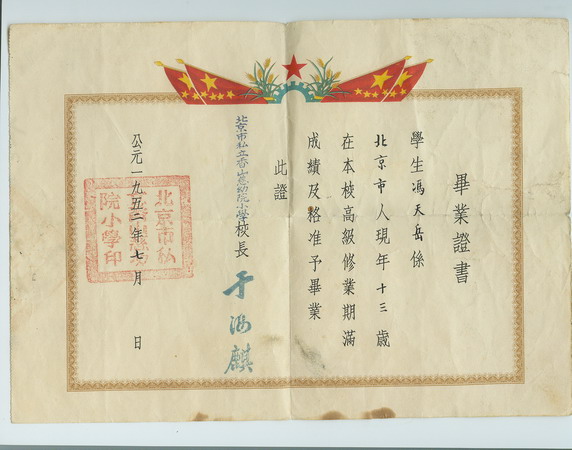 畢業證書
學生馮天岳係
北京市人現年十三歲
在本校高級修業期滿
成績及格准予畢業
此證
北京市私立香山慈幼院小學校長
于汝麒
公元一九五二年七月 日
北京市私
院小學印